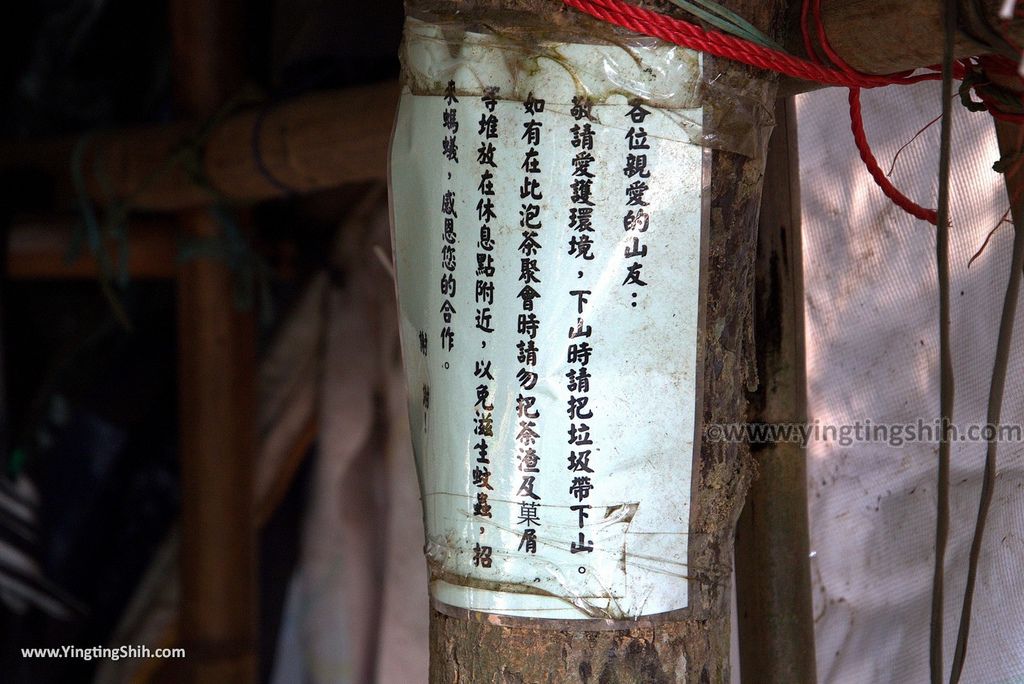 各位親愛的山友：
敬請愛護環境，下山時請把垃圾帶下山。
如有在此泡茶聚會時請勿把茶渣及菓屑
等堆放在休息點附近，以免滋生蚊蟲，招
來螞蟻，感恩您的合作。
謝謝
©www.yingtingshih.com
www.YingtingShih.com